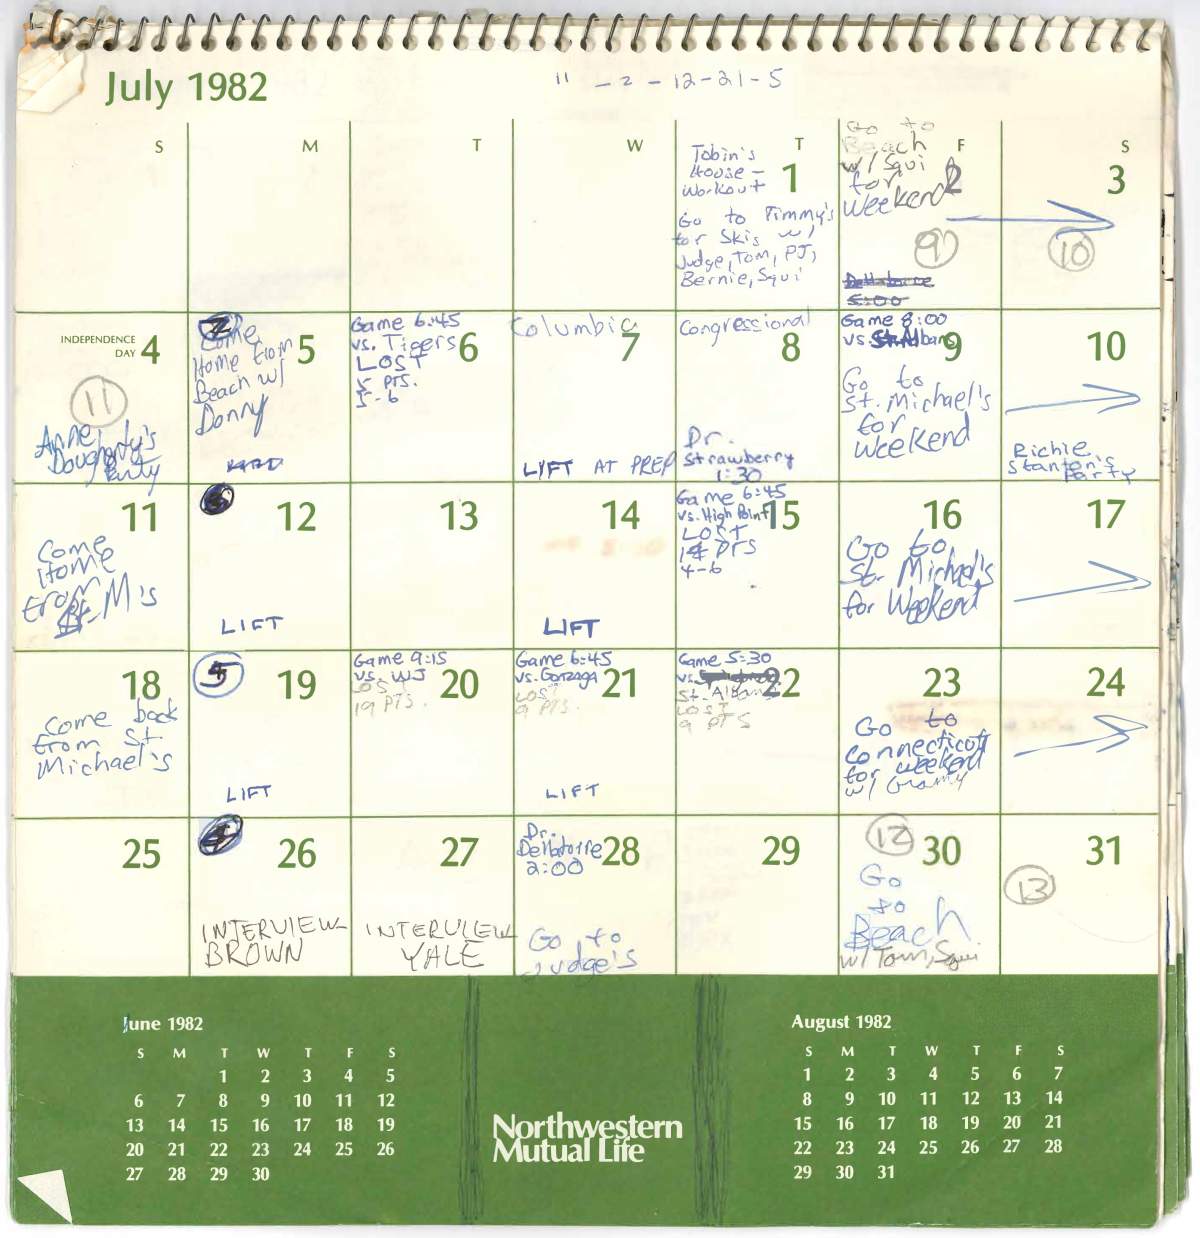 July 1982
" - 2 - 12-21-5
S M T W T F S
Tobin's
House -
Workout
1
Go to Timmy's
for Skis w/
Judge, Tom, PJ,
Bernie, Squi
Go to
Beach
w/ Squi
for
Weekend
2
9
5:00
3
10
INDEPENDENCE
DAY 4
11
Anne
Dougherty's
Party
5
Come
Home from
Beach w/
Donny
Game 6:45
vs. Tigers
6
LOST
5 PTS.
5-6
Columbia
7
LIFT AT PREP
Congressional
8
Dr.
Strawberry
1:30
Game 8:00
vs.
9
Go to
St. Michael's
for
Weekend
10
Richie
Stanton's
Party
11
Come
Home
from
St. M's
12
LIFT
13
14
LIFT
Game 6:45
vs. High Point
15
LOST
PTS
4-6
16
Go to
St. Michael's
for Weekend
17
18
Come back
from St.
Michael's
5
19
LIFT
Game 9:15
vs. WJ
20
LOST
19 PTS.
Game 6:45
vs. Gonzaga
21
LOST
9 PTS.
LIFT
Game 5:30
vs.
22
St. Albans
LOST
9 PTS
23
Go to
Connecticut
for weekend
w/ Grammy
24
25
26
INTERVIEW
BROWN
27
INTERVIEW
YALE
Dr.
Dellatorre
28
2:00
Go to
Judge's
29
12
30
Go
to
Beach
w/ Tom, Squi
31
13
June 1982
S M T W T F S
1 2 3 4 5
6 7 8 9 10 11 12
13 14 15 16 17 18 19
20 21 22 23 24 25 26
27 28 29 30
Northwestern
Mutual Life
August 1982
S M T W T F S
1 2 3 4 5 6 7
8 9 10 11 12 13 14
15 16 17 18 19 20 21
22 23 24 25 26 27 28
29 30 31